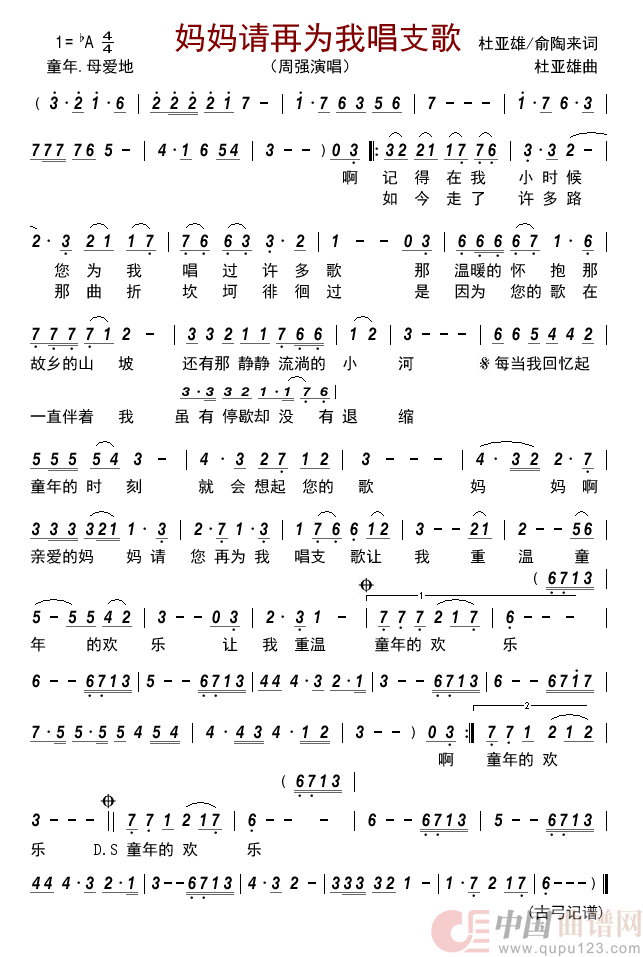 妈妈请再为我唱支歌
1=♭A 4/4
杜亚雄/俞陶来词
童年.母爱地
（周强演唱）
杜亚雄曲
( 3·2 1·6 | 2 2 2 2 1 6 7 - | 1·7 6 3 5 6 | 7 - - - | 1·7 6·3 |
7 7 7 7 6 5 - | 4·1 6 5 4 | 3 - - ) 0 3 ‖: 3 2 2 1 1 7 7 6 | 3·3 2 - |
啊 记 得 在 我 小 时 候
如 今 走 了 许 多 路
2·3 2 1 1 7 | 7 6 6 3 3·2 | 1 - - 0 3 | 6 6 6 6 7 1·6 |
您 为 我 唱 过 许 多 歌 那 温暖的 怀 抱 那
那 曲 折 坎 坷 徘 徊 过 是 因为 您的 歌 在
7 7 7 7 1 2 - | 3 3 2 1 1 7 6 6 | 1 2 - | 6 6 5 4 4 2 |
故乡的 山 坡 还有那 静静 流淌的 小 河 𝄋 每当我 回忆起
3·3 3 2 1·1 7 6
一直伴着 我 虽 有 停歇却 没 有 退 缩
5 5 5 5 4 3 - | 4·3 2 7 1 2 | 3 - - - | 4·3 2 2·7 |
童年的 时 刻 就 会 想起 您的 歌 妈 妈 啊
3 3 3 3 2 1 1·3 | 2·7 1·3 | 1 7 6 6 1 2 | 3 - - 2 1 | 2 - - 5 6 |
亲爱的 妈 妈 请 您 再为 我 唱支 歌让 我 重 温 童
( 6 7 1 3
5 - 5 5 4 2 | 3 - - 0 3 | 2·3 1 - | 7 7 7 2 1 7 | 6 - - - |
1
年 的 欢 乐 让 我 重温 童年的 欢 乐
6 - - 6 7 1 3 | 5 - - 6 7 1 3 | 4 4 4·3 2·1 | 3 - - 6 7 1 3 | 6 - - 6 7 1 7 |
7·5 5·5 5 4 5 4 | 4·4 3 4 3 4·1 2 | 3 - - ) | 0 3 :‖ 7 7 1 2 1 2 |
2
啊 童年的 欢
( 6 7 1 3
3 - - - ‖ 7 7 1 2 1 7 | 6 - - - | 6 - - 6 7 1 3 | 6 - - 6 7 1 3 |
乐 D.S 童年的 欢 乐
4 4 4·3 2·1 2 | 3 - - 6 7 1 3 | 4·3 2 3·2 | 3 3 3 3 2 1 - | 1·7 2 1 7 | 6 - - - ) ‖
(古弓记谱)
中国曲谱网
www.qupu123.com